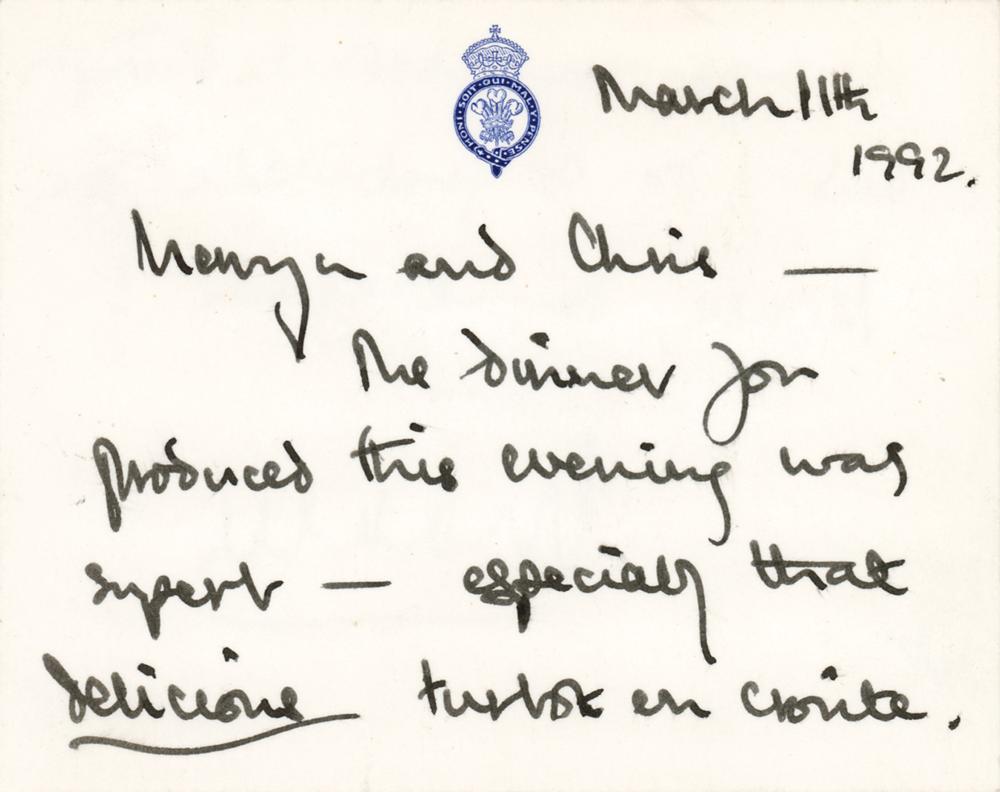 HONI·SOIT·QUI·MAL·Y·PENSE
March 11th
1992.
Mervyn and Chris —
The dinner you
produced this evening was
superb — especially that
delicious turbot en croûte.